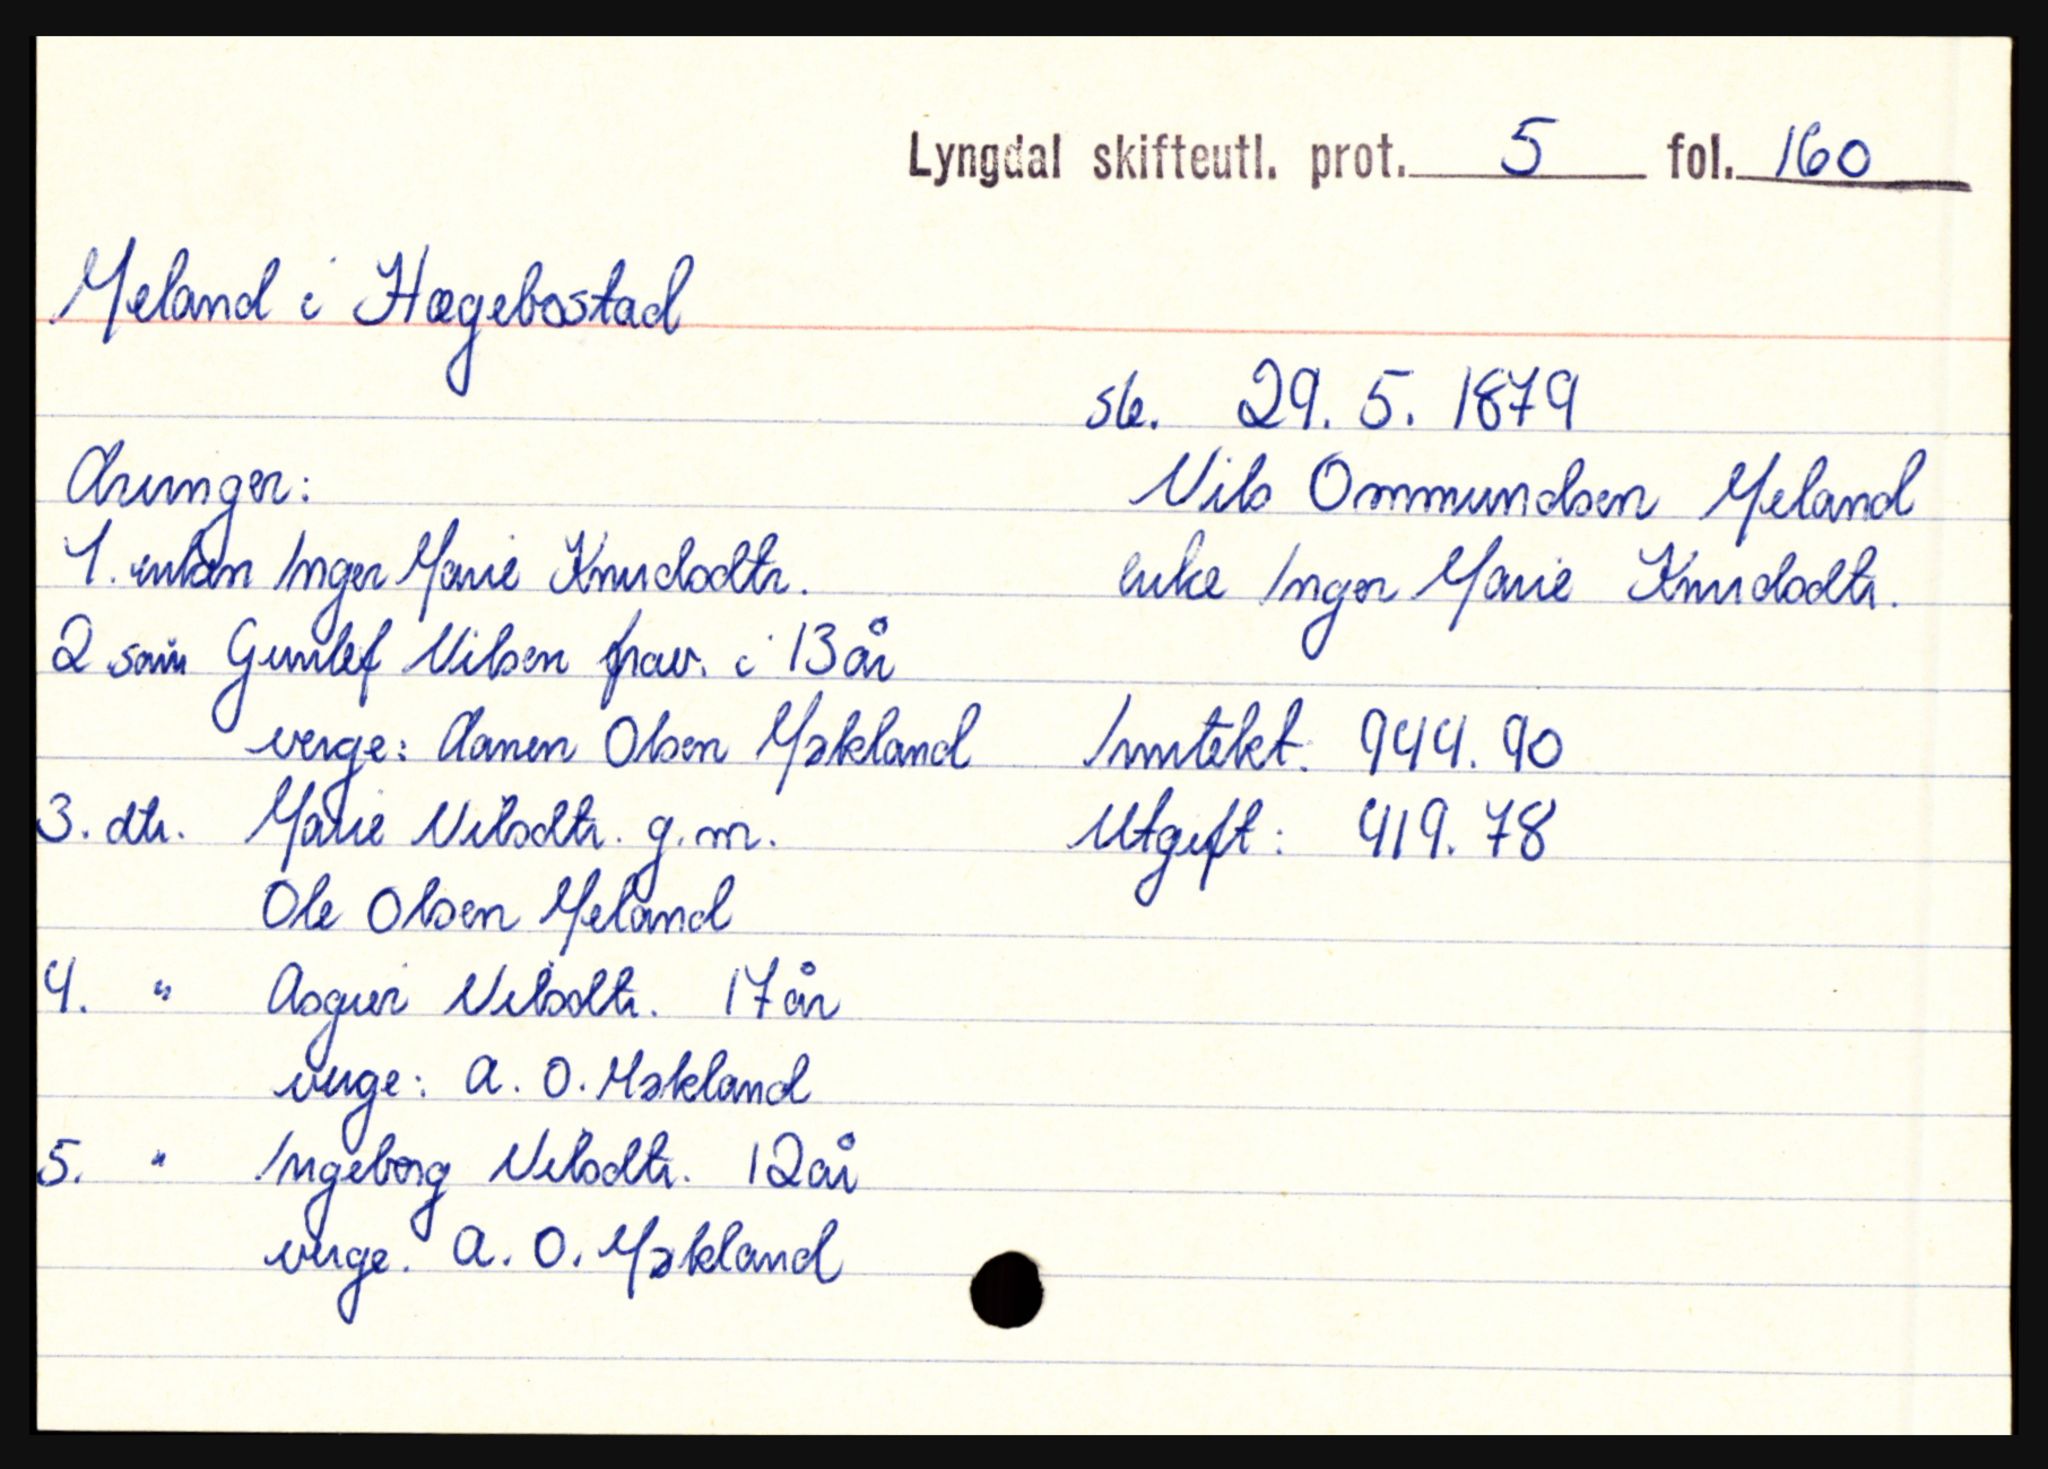 Lyngdal skifteutl. prot. 5 fol. 160
Meland i Hægebostad
sb. 29. 5. 1879
Nils Ommundsen Meland
enke Inger Marie Knudsdtr.
Inntekt: 944.90
Utgift: 419.78
Arvinger:
1. enken Inger Marie Knudsdtr.
2 sønn Gunlef Nilsen frav. i 13 år
verge: Aanen Olsen Møkland
3. dtr. Marie Nilsdtr. g.m.
Ole Olsen Meland
4. " Asgier Nilsdtr. 17 år
verge: A. O. Møkland
5. " Ingeborg Nilsdtr. 12 år
verge. A. O. Møkland